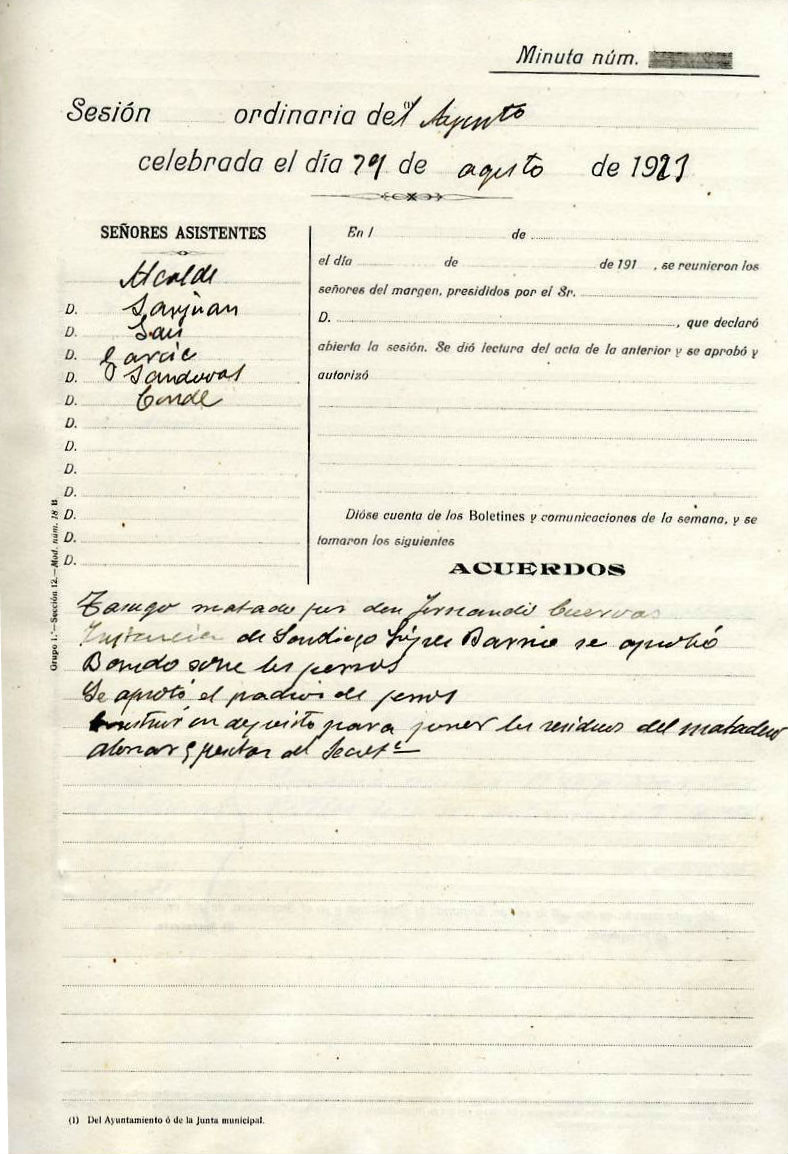 Minuta núm.
Sesión ordinaria del (1) Aynto
celebrada el día 29 de agosto de 1921
SEÑORES ASISTENTES
Alcalde
D. Sanjuan
D.
D. Garcia
D. Sandoval
D. Conde
D.
D.
D.
D.
D.
D.
D.
En l de
el día de de 191 , se reunieron los
señores del margen, presididos por el Sr.
D. , que declaró
abierta la sesión. Se dió lectura del acta de la anterior y se aprobó y
autorizó
Dióse cuenta de los Boletines y comunicaciones de la semana, y se
tomaron los siguientes
ACUERDOS
Tasugo matado por don Fernando Cuervas
Instancia de Sandiego López Barrio se aprobó
Bando sobre los perros
Se aprobó el padron de perros
Construir un deposito para poner los residuos del matadero
abonar 5 pesetas al Secretº
Grupo 1.º—Sección 12.—Mod. núm. 18 B
(1) Del Ayuntamiento ó de la Junta municipal.